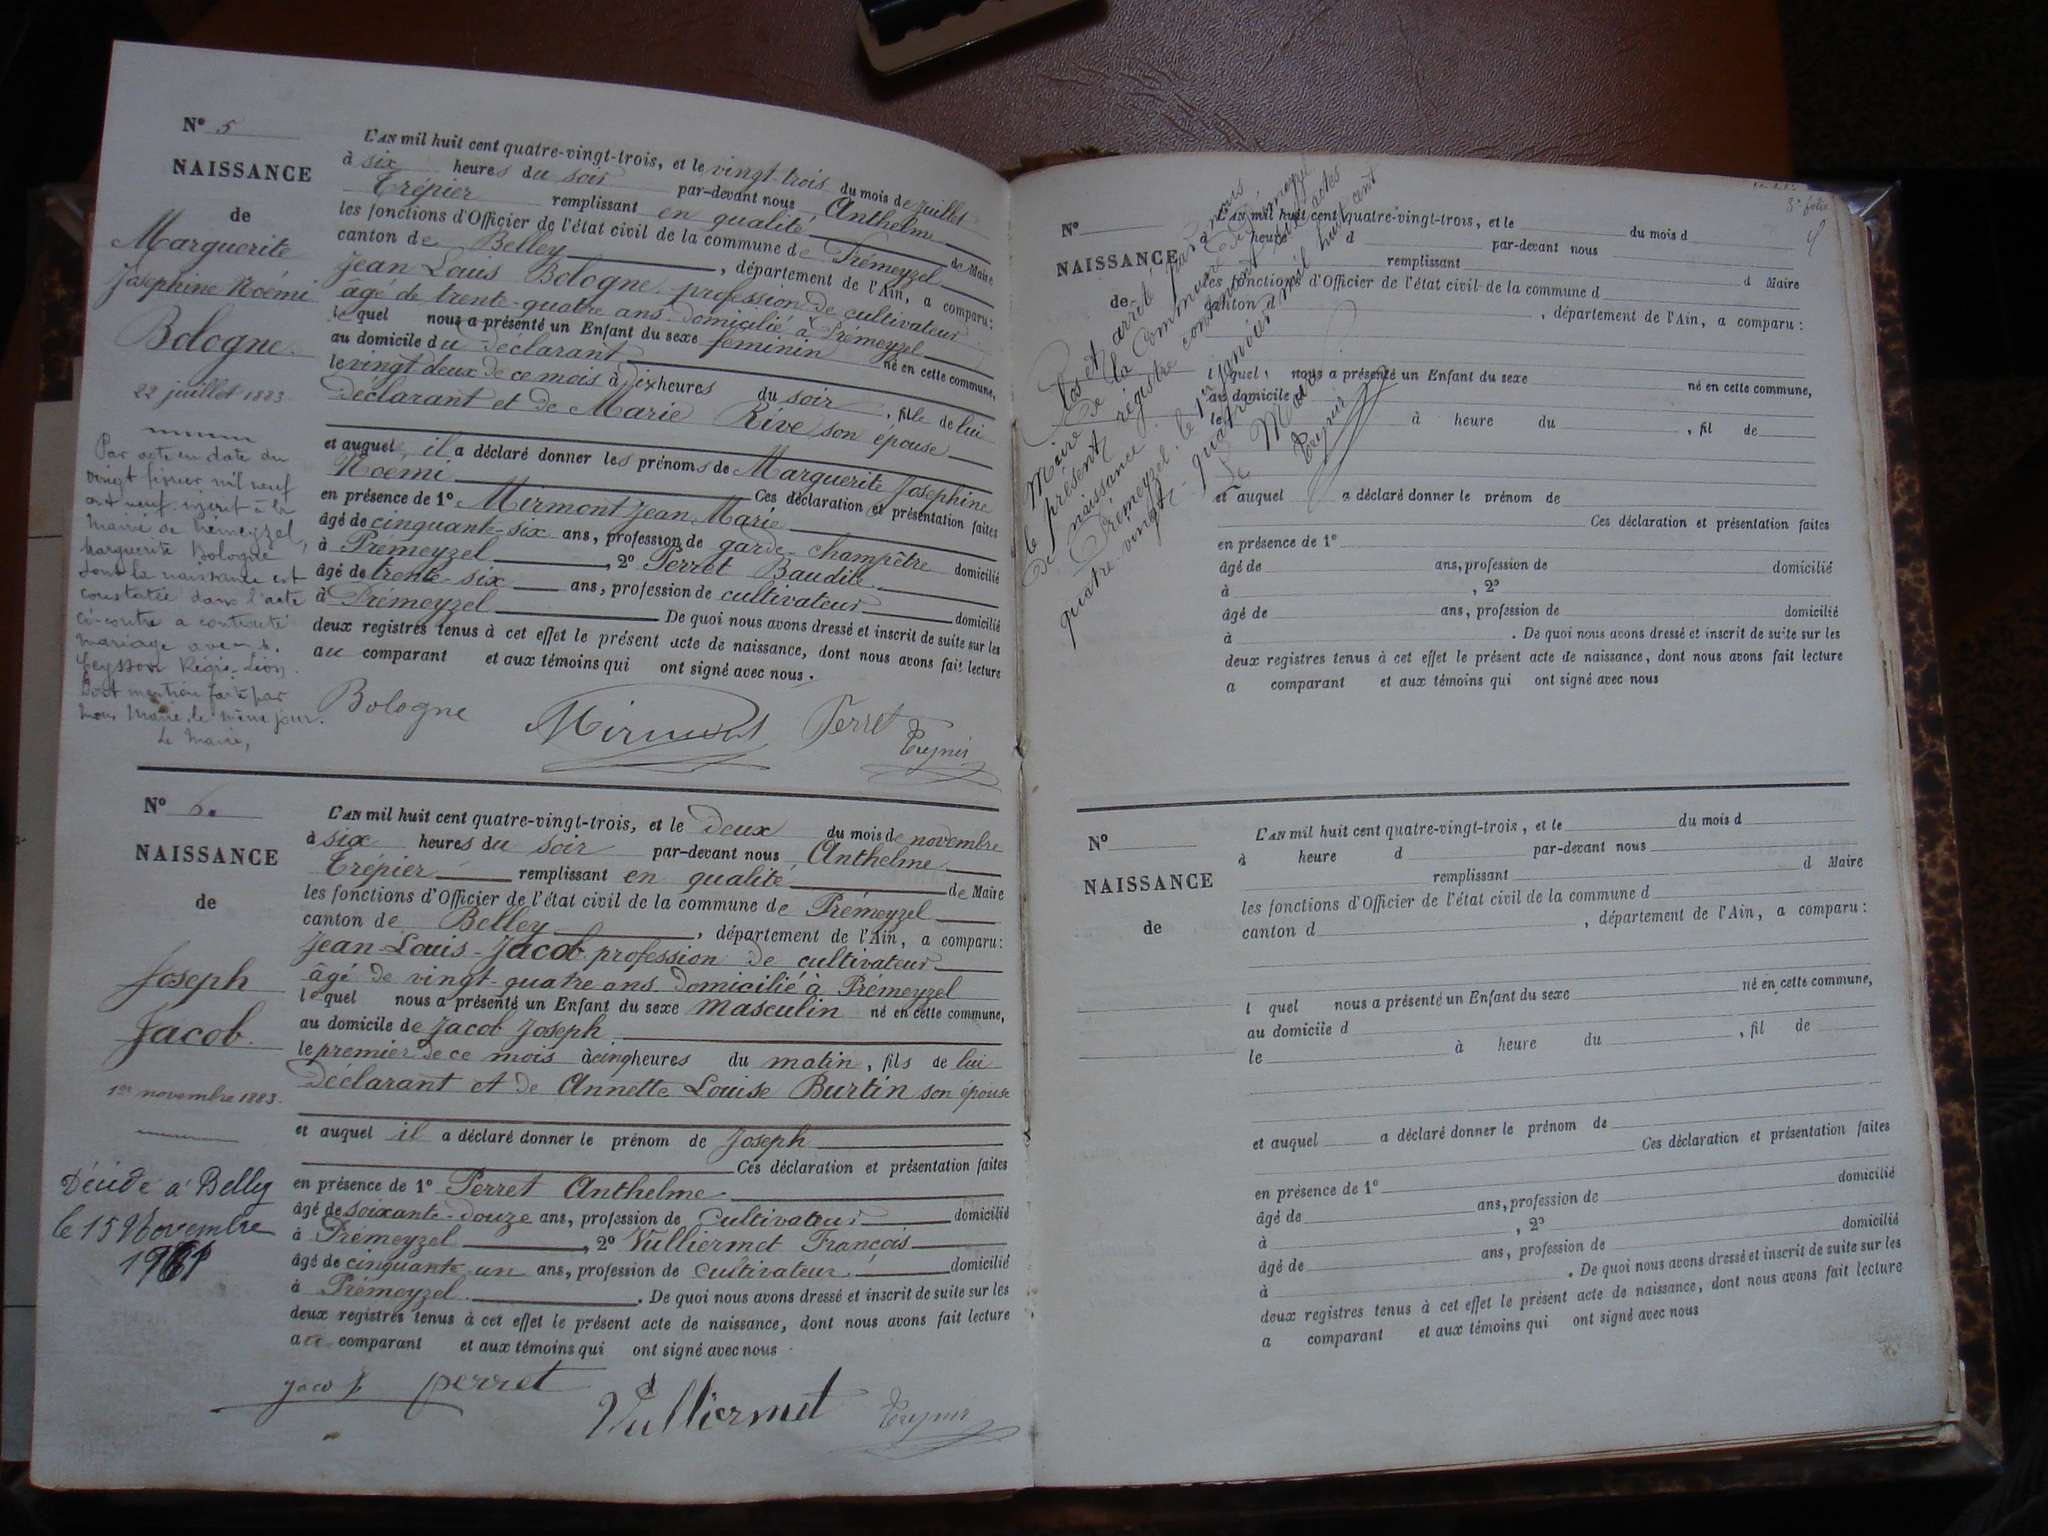 N° 5
NAISSANCE
de
Marguerite
Joséphine Noémi
Bologne
22 juillet 1883
Par acte en date du
vingt février mil neuf
cent neuf inscrit à la
Mairie de Prémeyzel,
Marguerite Bologne
dont la naissance est
constatée dans l'acte
ci-contre a contracté
mariage avec
Régis Léon.
Dont mention faite par
nous Maire, le même jour.
Le Maire,
L'AN mil huit cent quatre-vingt-trois, et le vingt-trois du mois de juillet
à six heures du soir par-devant nous Anthelme
Trépier remplissant en qualité de Maire
les fonctions d'Officier de l'état civil de la commune de Prémeyzel
canton de Belley, département de l'Ain, a comparu:
Jean Louis Bologne profession de cultivateur
âgé de trente-quatre ans domicilié à Prémeyzel
lequel nous a présenté un Enfant du sexe feminin né en cette commune,
au domicile du déclarant
le vingt deux de ce mois à dix heures du soir, fille de lui
Déclarant et de Marie Rive son épouse
et auquel il a déclaré donner les prénoms de Marguerite Josephine
Noemi Ces déclaration et présentation faites
en présence de 1° Mirmont Jean Marie
âgé de cinquante-six ans, profession de garde-champêtre domicilié
à Prémeyzel, 2° Perret Baudile
âgé de trente-six ans, profession de cultivateur domicilié
à Prémeyzel De quoi nous avons dressé et inscrit de suite sur les
deux registres tenus à cet effet le présent acte de naissance, dont nous avons fait lecture
au comparant et aux témoins qui ont signé avec nous.
Bologne Mirmont Perret
N° 6.
NAISSANCE
de
Joseph
Jacob.
1er novembre 1883.
Décidé à Belley
le 15 Novembre
L'AN mil huit cent quatre-vingt-trois, et le Deux du mois de novembre
à six heures du soir par-devant nous Anthelme
Trépier remplissant en qualité de Maire
les fonctions d'Officier de l'état civil de la commune de Prémeyzel
canton de Belley, département de l'Ain, a comparu:
Jean-Louis-Jacob profession de cultivateur
âgé de vingt-quatre ans domicilié à Prémeyzel
lequel nous a présenté un Enfant du sexe masculin né en cette commune,
au domicile de Jacob Joseph
le premier de ce mois à cinq heures du matin, fils de lui
Déclarant et de Annette Louise Burtin son épouse
et auquel il a déclaré donner le prénom de Joseph
Ces déclaration et présentation faites
en présence de 1° Perret Anthelme
âgé de soixante-douze ans, profession de Cultivateur domicilié
à Prémeyzel, 2° Vulliermet François
âgé de cinquante un ans, profession de Cultivateur domicilié
à Prémeyzel. De quoi nous avons dressé et inscrit de suite sur les
deux registres tenus à cet effet le présent acte de naissance, dont nous avons fait lecture
au comparant et aux témoins qui ont signé avec nous
Jacob perret
Vulliermet
3e folio
N°
NAISSANCE
de
L'AN mil huit cent quatre-vingt-trois, et le du mois d
à heure d par-devant nous
remplissant d Maire
les fonctions d'Officier de l'état civil de la commune d
canton d, département de l'Ain, a comparu:
l quel, nous a présenté un Enfant du sexe né en cette commune,
au domicile d
le à heure du, fil de
et auquel a déclaré donner le prénom de
Ces déclaration et présentation faites
en présence de 1°
âgé de ans, profession de domicilié
à, 2°
âgé de ans, profession de domicilié
à. De quoi nous avons dressé et inscrit de suite sur les
deux registres tenus à cet effet le présent acte de naissance, dont nous avons fait lecture
a comparant et aux témoins qui ont signé avec nous
Clos et arrêté par nous
Maire de la Commune de Prémeyzel
le présent régistre contenant actes
de naissance.
Prémeyzel le 1er janvier mil huit cent
quatre vingt-quatre
Le Maire
N°
NAISSANCE
de
L'AN mil huit cent quatre-vingt-trois, et le du mois d
à heure d par-devant nous
remplissant d Maire
les fonctions d'Officier de l'état civil de la commune d
canton d, département de l'Ain, a comparu:
l quel nous a présenté un Enfant du sexe né en cette commune,
au domicile d
le à heure du, fil de
et auquel a déclaré donner le prénom de
Ces déclaration et présentation faites
en présence de 1°
âgé de ans, profession de domicilié
à, 2°
âgé de ans, profession de domicilié
à. De quoi nous avons dressé et inscrit de suite sur les
deux registres tenus à cet effet le présent acte de naissance, dont nous avons fait lecture
a comparant et aux témoins qui ont signé avec nous